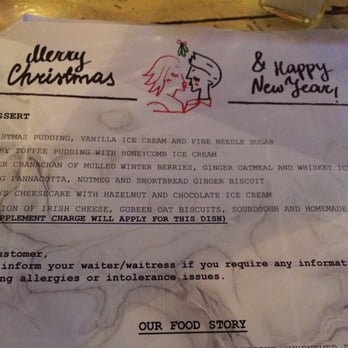 Merry Christmas
& Happy New Year!
ESSERT
STMAS PUDDING, VANILLA ICE CREAM AND PINE NEEDLE SUGAR
KY TOFFEE PUDDING WITH HONEYCOMB ICE CREAM
ER CRANACHAN OF MULLED WINTER BERRIES, GINGER OATMEAL AND WHISKEY IC
G PANNACOTTA, NUTMEG AND SHORTBREAD GINGER BISCUIT
YS CHEESECAKE WITH HAZELNUT AND CHOCOLATE ICE CREAM
ION OF IRISH CHEESE, GUBEEN OAT BISCUITS, SOURDOUGH AND HOMEMADE
PPLEMENT CHARGE WILL APPLY FOR THIS DISH)
ustomer,
inform your waiter/waitress if you require any informat
ng allergies or intolerance issues.
OUR FOOD STORY